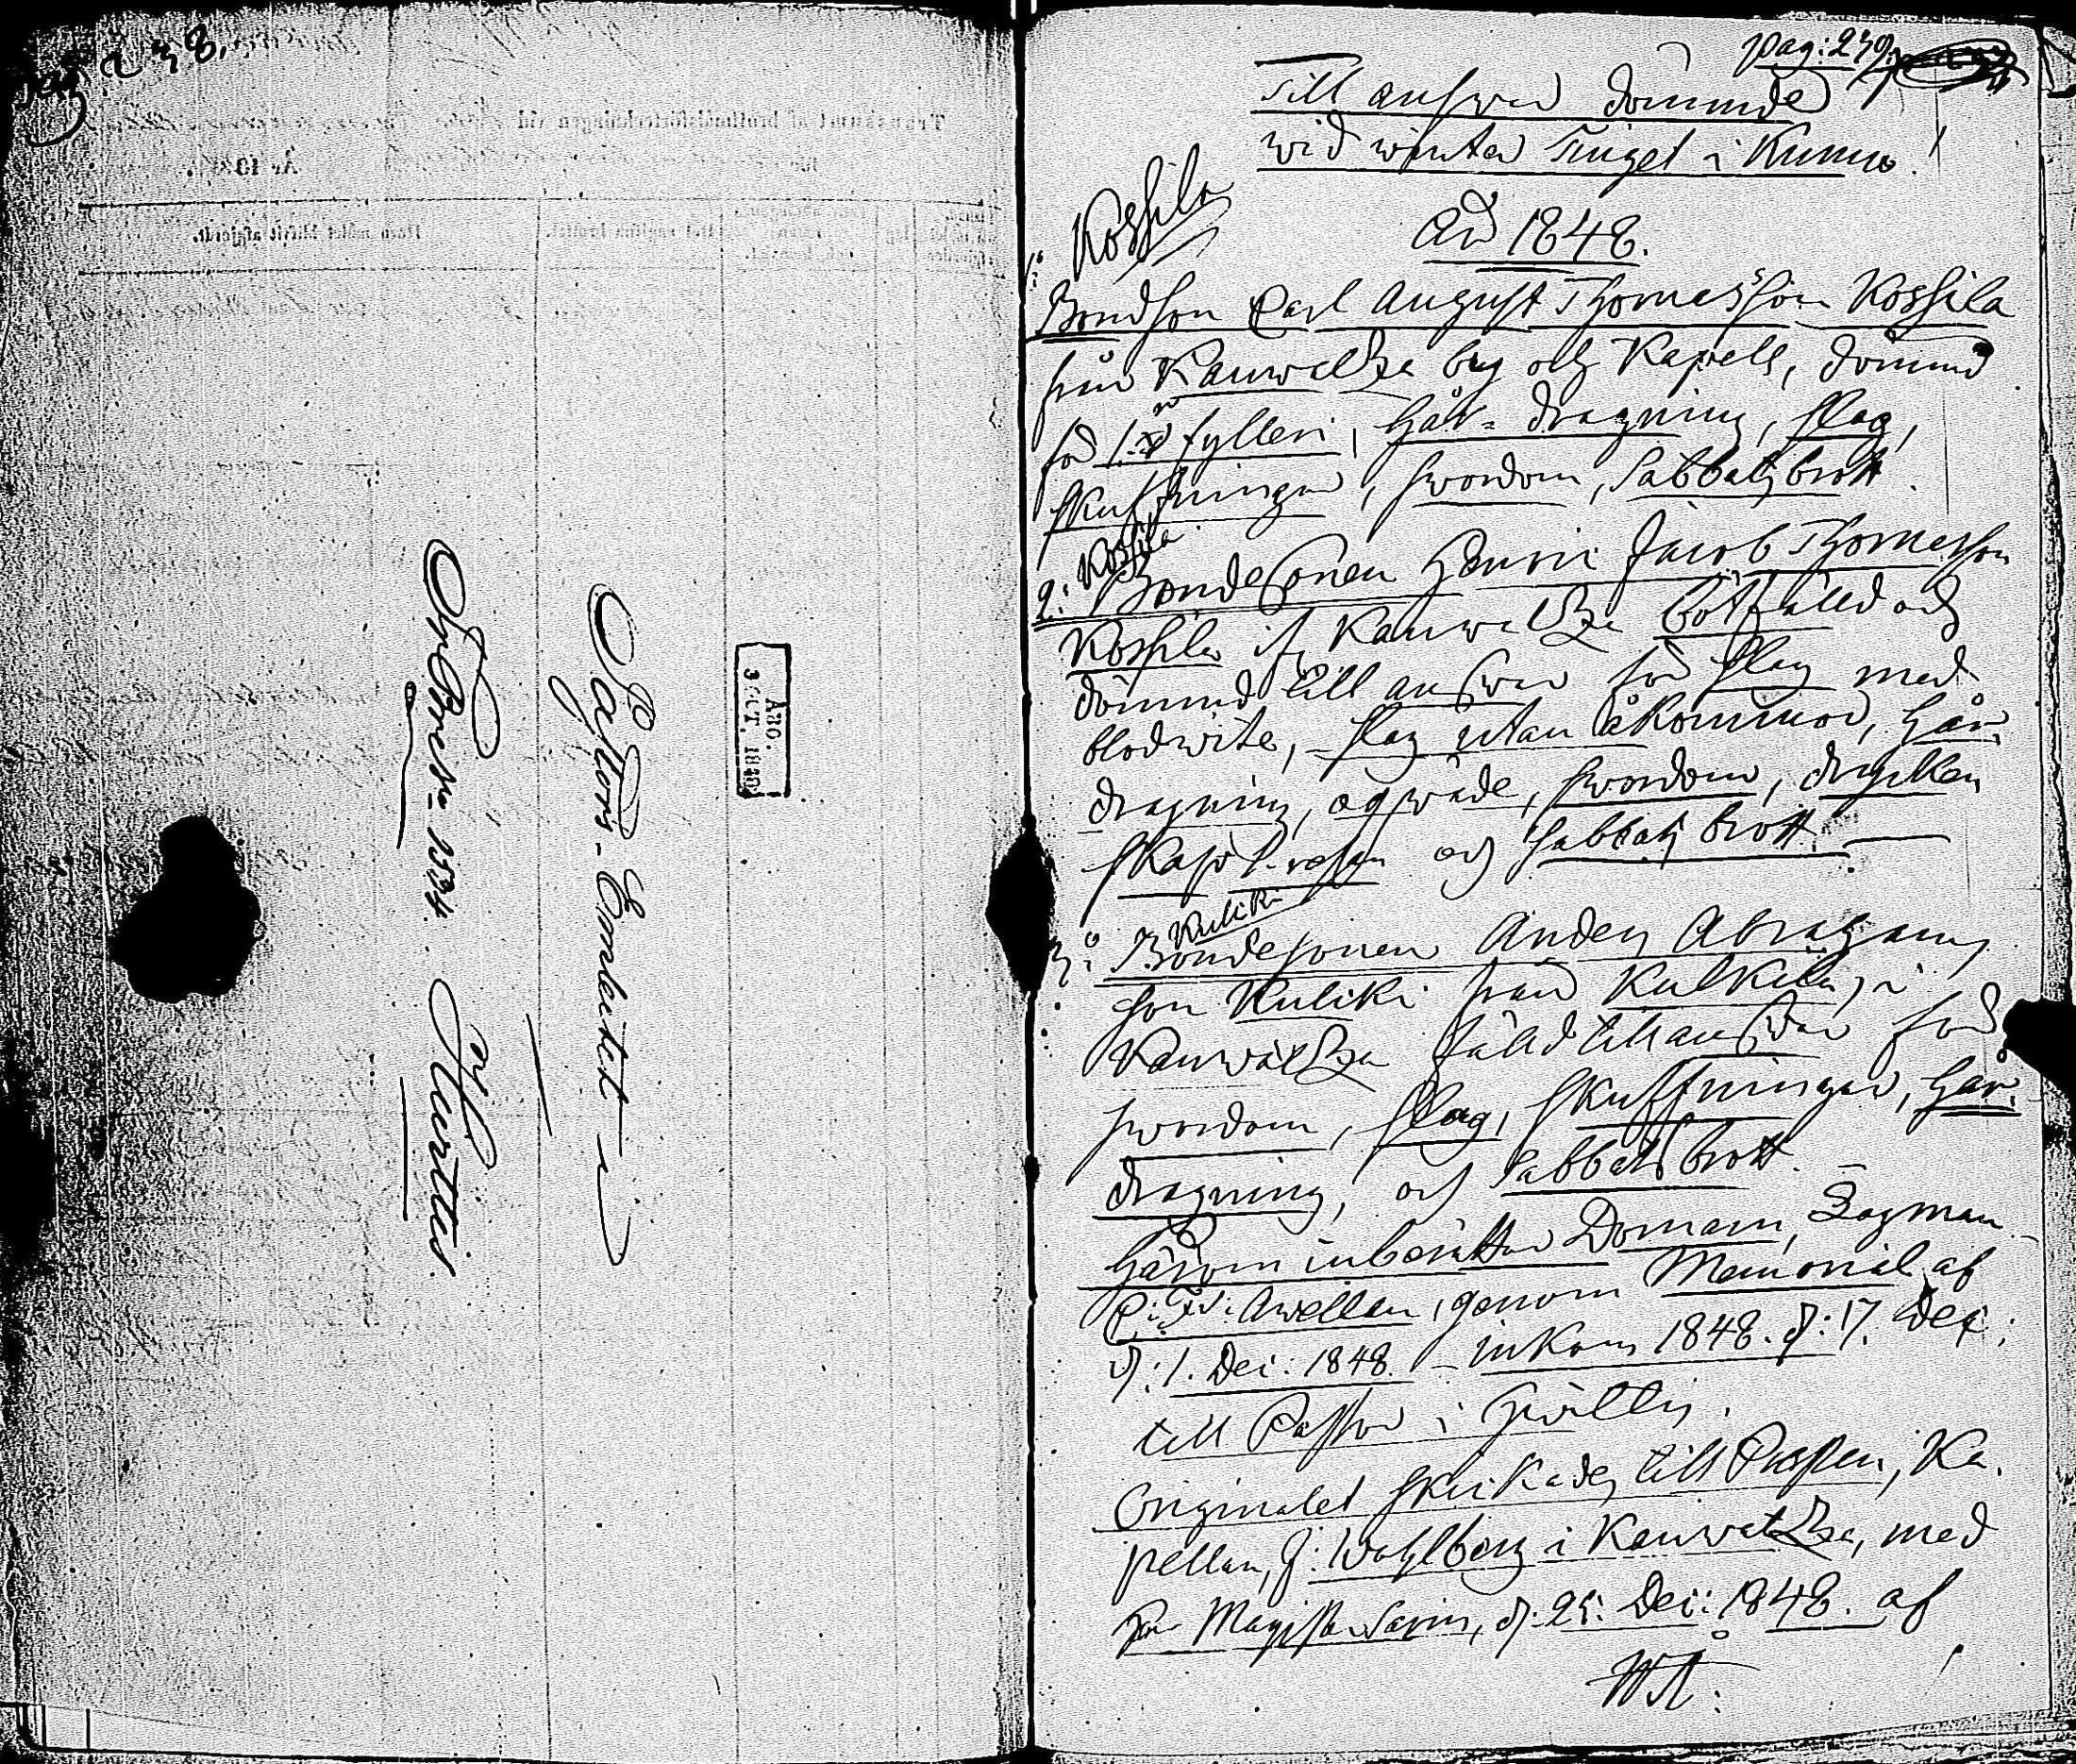 pag 248.
Åbo.
3 OCT. 18
Pastors-Embetet
i
Till answar dömde
wid winter Tinget i Kumo
År 1848.
pag: 249.
1: Kossila
Bondson Carl August Thomasson Kossila
från Kauwatza by och Kapell, dömd
för 1:a fylleri, hår-dragning, slag,
skuffningar, swordom, Sabbatsbrott.
2: Kossila
Bondesonen Henric Jacob Thomasson
Kossila if. Kauwatza botfälld och
dömd till answar för slag med
blodwite, slag utan åkommor, hår-
dragning, oqwäde, swordom, drycken
skaps-resa och Sabbats brott.
3: Kuliki
Bondesonen Anders Abrahams
son Kuliki från Kulkila, i
Kauwatza fälld till answar för
swordom, slag, skuffningar, hår-
dragning, och Sabbats brott.
Härom inberättar Domaren, Lagman
C: Fr: Avellan, genom Memorial af
d: 1. Dec: 1848. – inkom 1848. d: 17. Dec:
till Pastor i
Originalet skickades till Prosten, Ka-
pellan, J: Wahlberg i Kauwatza, med
d. 25: Dec: 1848. af